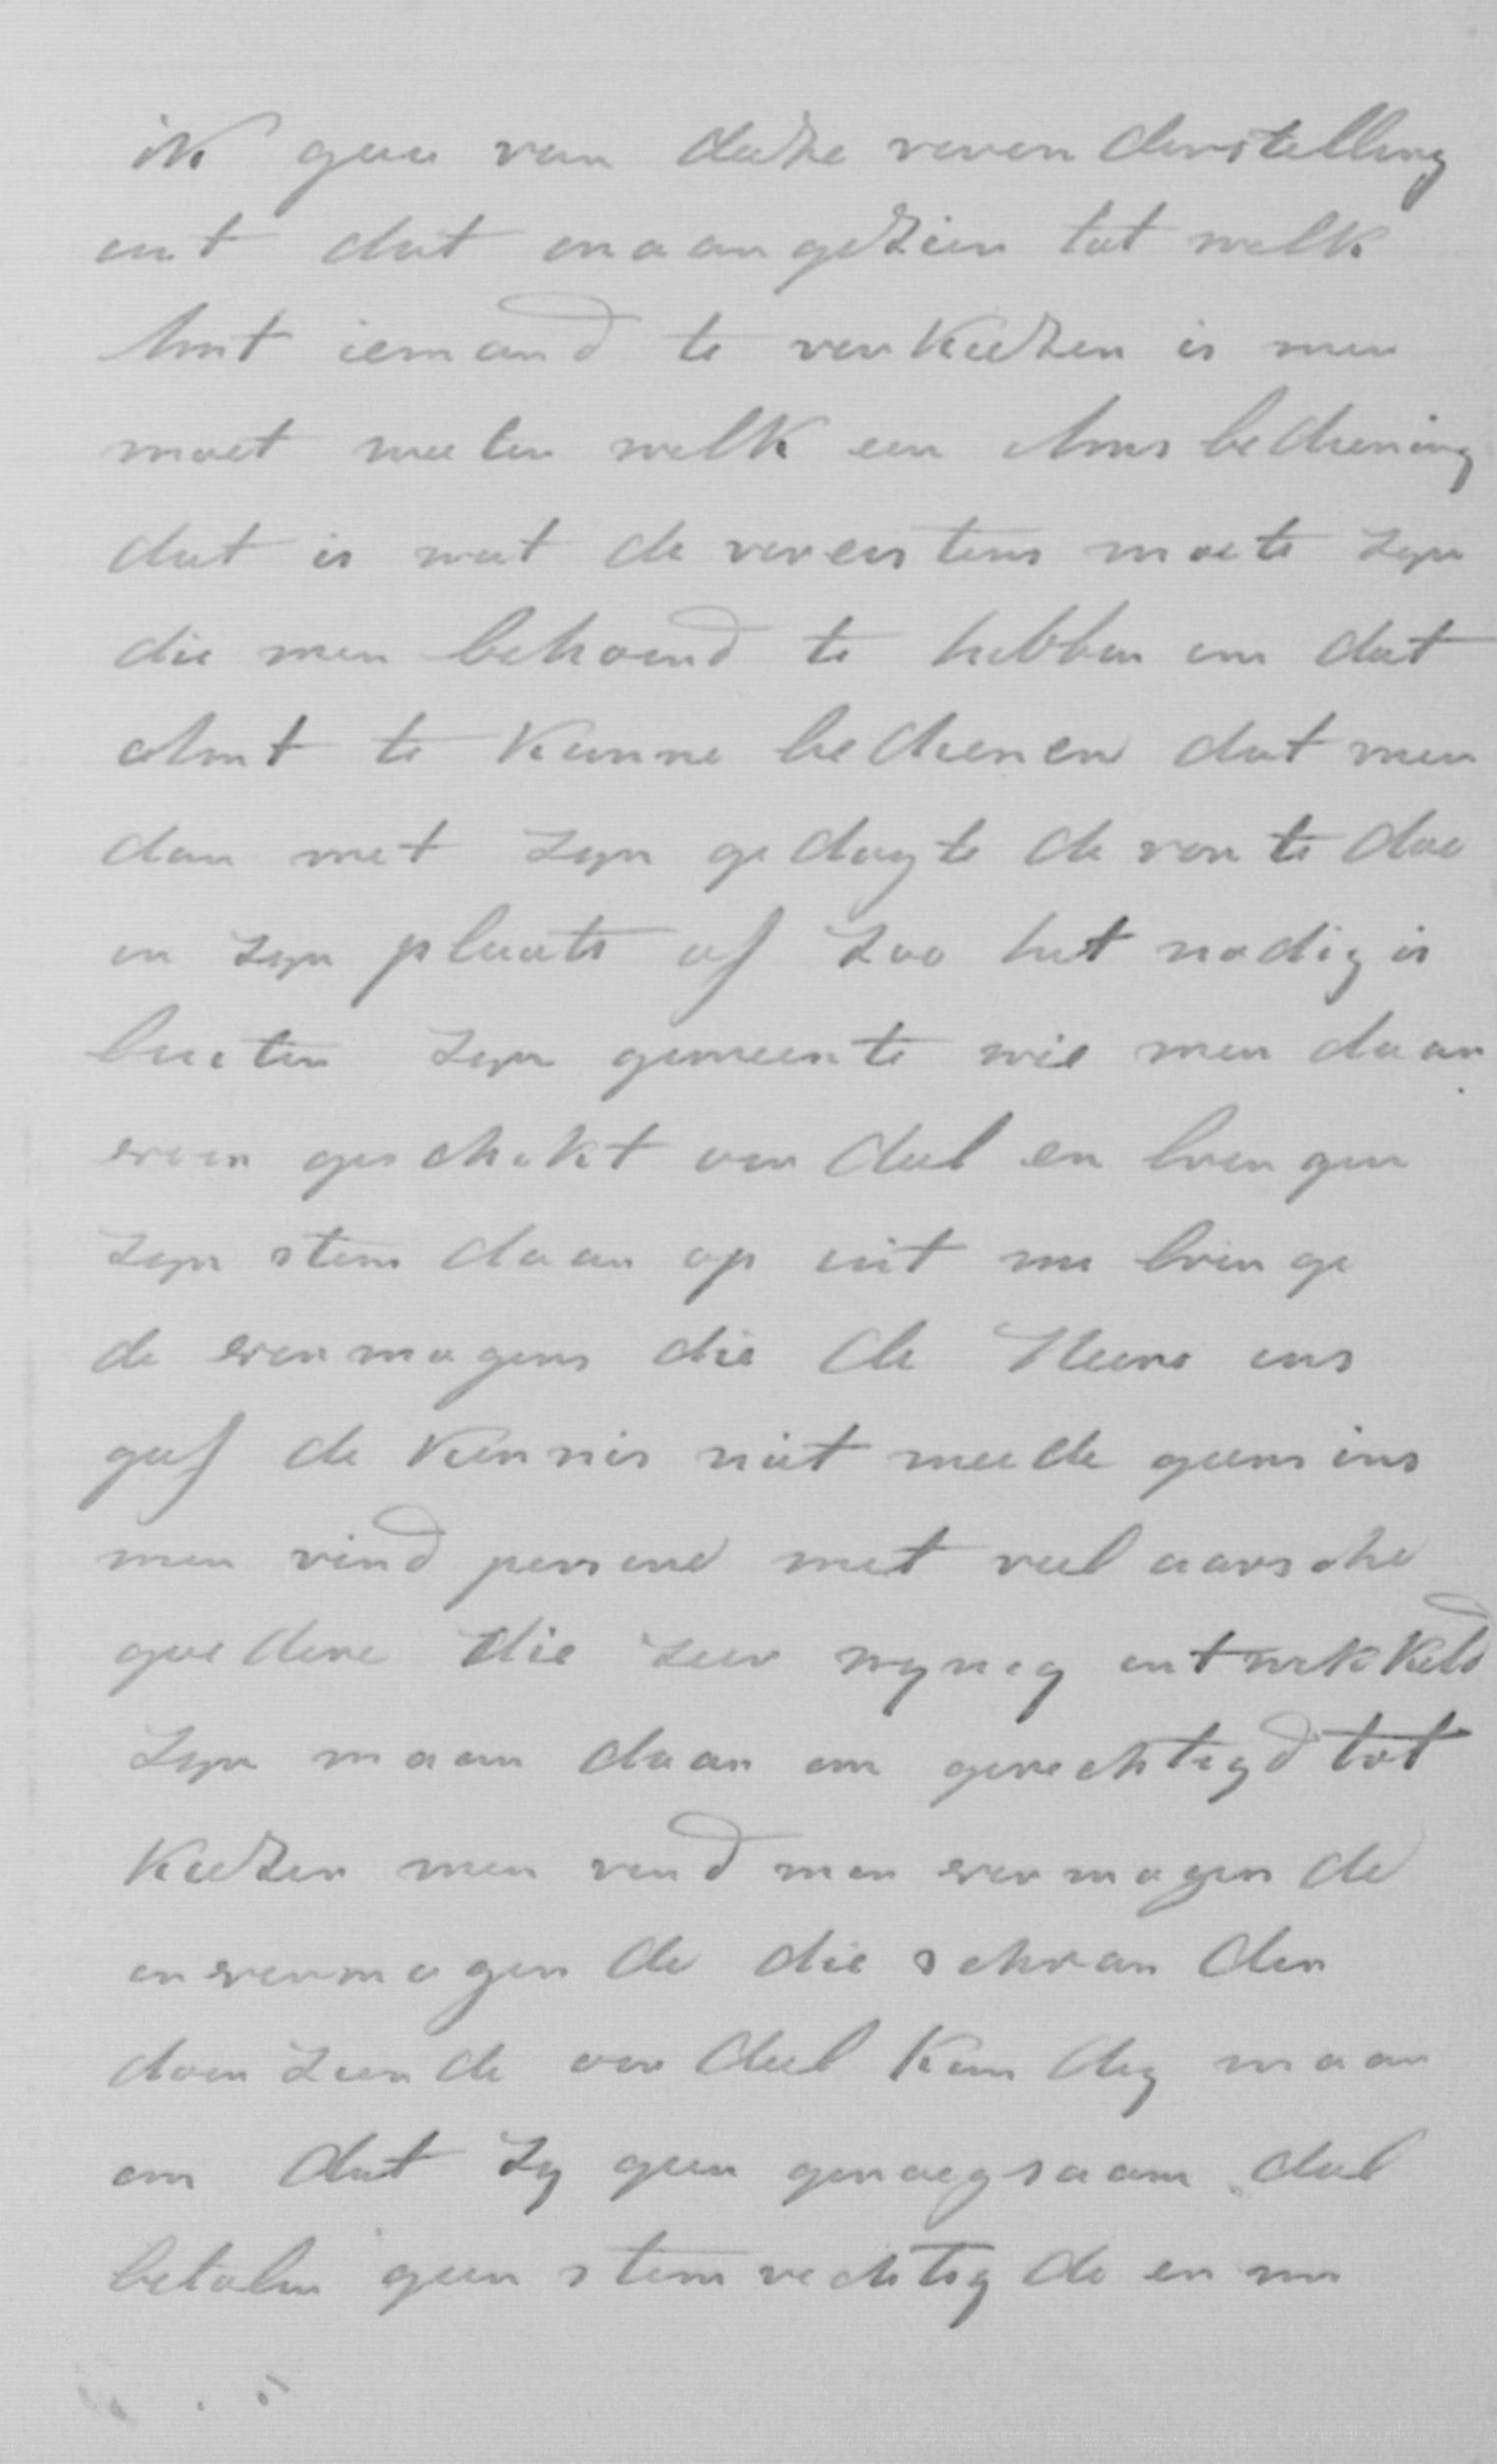 ik gaa van deeze veronderstelling
uit dat onaangezien tot welk
Amt iemand te verkiezen is men
moet weeten welk een Ams bediening
dat is wat de vereistens moete zyn
die men behoord te hebben om dat
Amt te kunne bedienen dat men
dan met zyn gedagte de ronte doe
in zyn plaats of zoo het nodig is
buiten zyn gemeente wie men daar
voor geschikt oordeel en brengen
zyn stem daar op uit nu brenge
de vermogens die de Heere ons
gaf de kennis niet meede geensins
men vind persone met veel aarsche
goedere die zeer wynig ontwikkeld
zyn maar daar om gerechtigd tot
kiezen men vind min vermogende
onvermogende die schrander
doorziende oordeel kundig maar
om dat zy geen genoegsaam deel
betalen geen stemrechtigde en nu